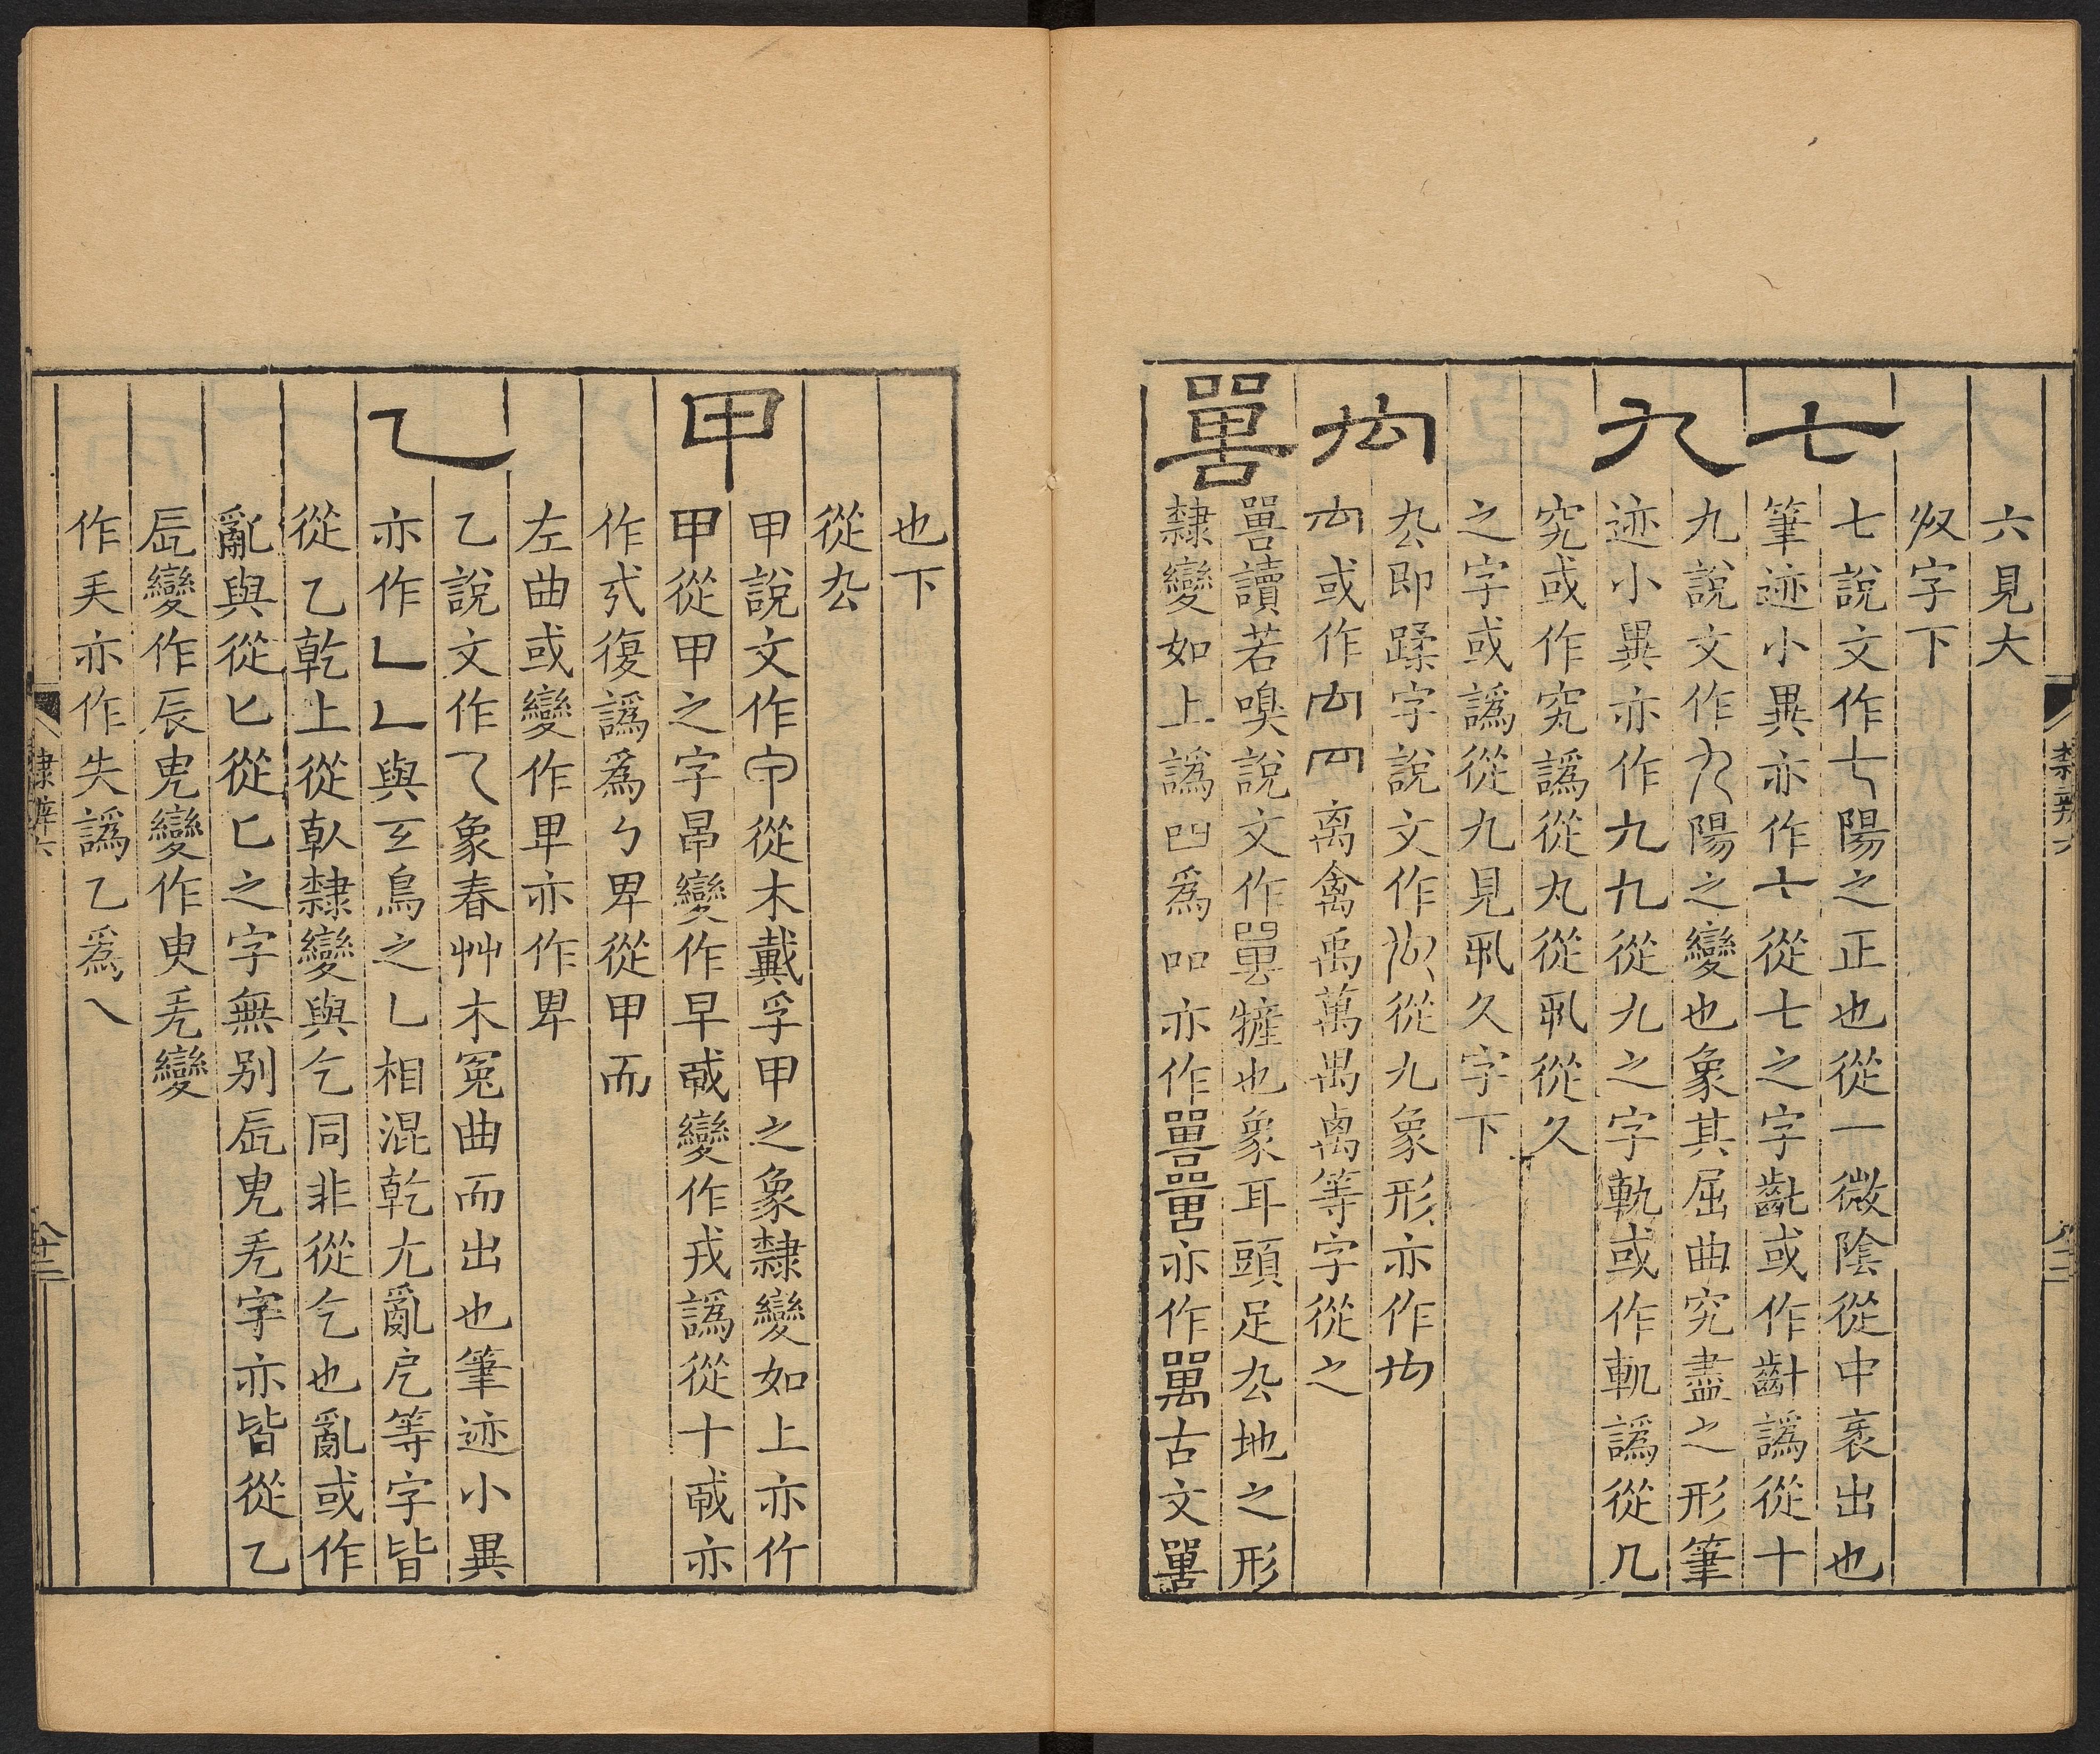 六見大
𣦼字下
七
七說文作七陽之正也從一微陰從中衺出也
筆迹小異亦作𠀁從七之字齔或作𪗗譌從十
九
九說文作九陽之變也象其屈曲究盡之形筆
迹小異亦作九九從九之字軌或作軓譌從几
究或作究譌從丸從𠃨從久
之字或譌從九見𠃨久字下
禸
厹即蹂字說文作禸從九象形亦作禸
禸或作禸禸离禽禹萬禺离等字從之
嘼
嘼讀若嗅說文作嘼㹌也象耳頭足厹地之形
隸變如上譌吅爲吅亦作嘼嘼亦作嘼古文嘼
也下
從厹
甲
甲說文作𠇚從木戴孚甲之象隸變如上亦作
甲從甲之字𣅀變作早𢧢變作戎譌從十𢧢亦
作𢦦復譌爲𠂆卑從甲而
左曲或變作𤰞亦作卑
乙
乙說文作乙象春艸木冤曲而出也筆迹小異
亦作乚𠃊與玄鳥之乚相混乾尤亂戹等字皆
從乙乾上從倝隸變與乞同非從乞也亂或作
亂與從匕從匚之字無别𠩕㒯𠂹字亦皆從乙
𠩕變作辰㒯變作曳𠂹變
作𡗗亦作失譌乙爲乀
隸辨六
隸辨六